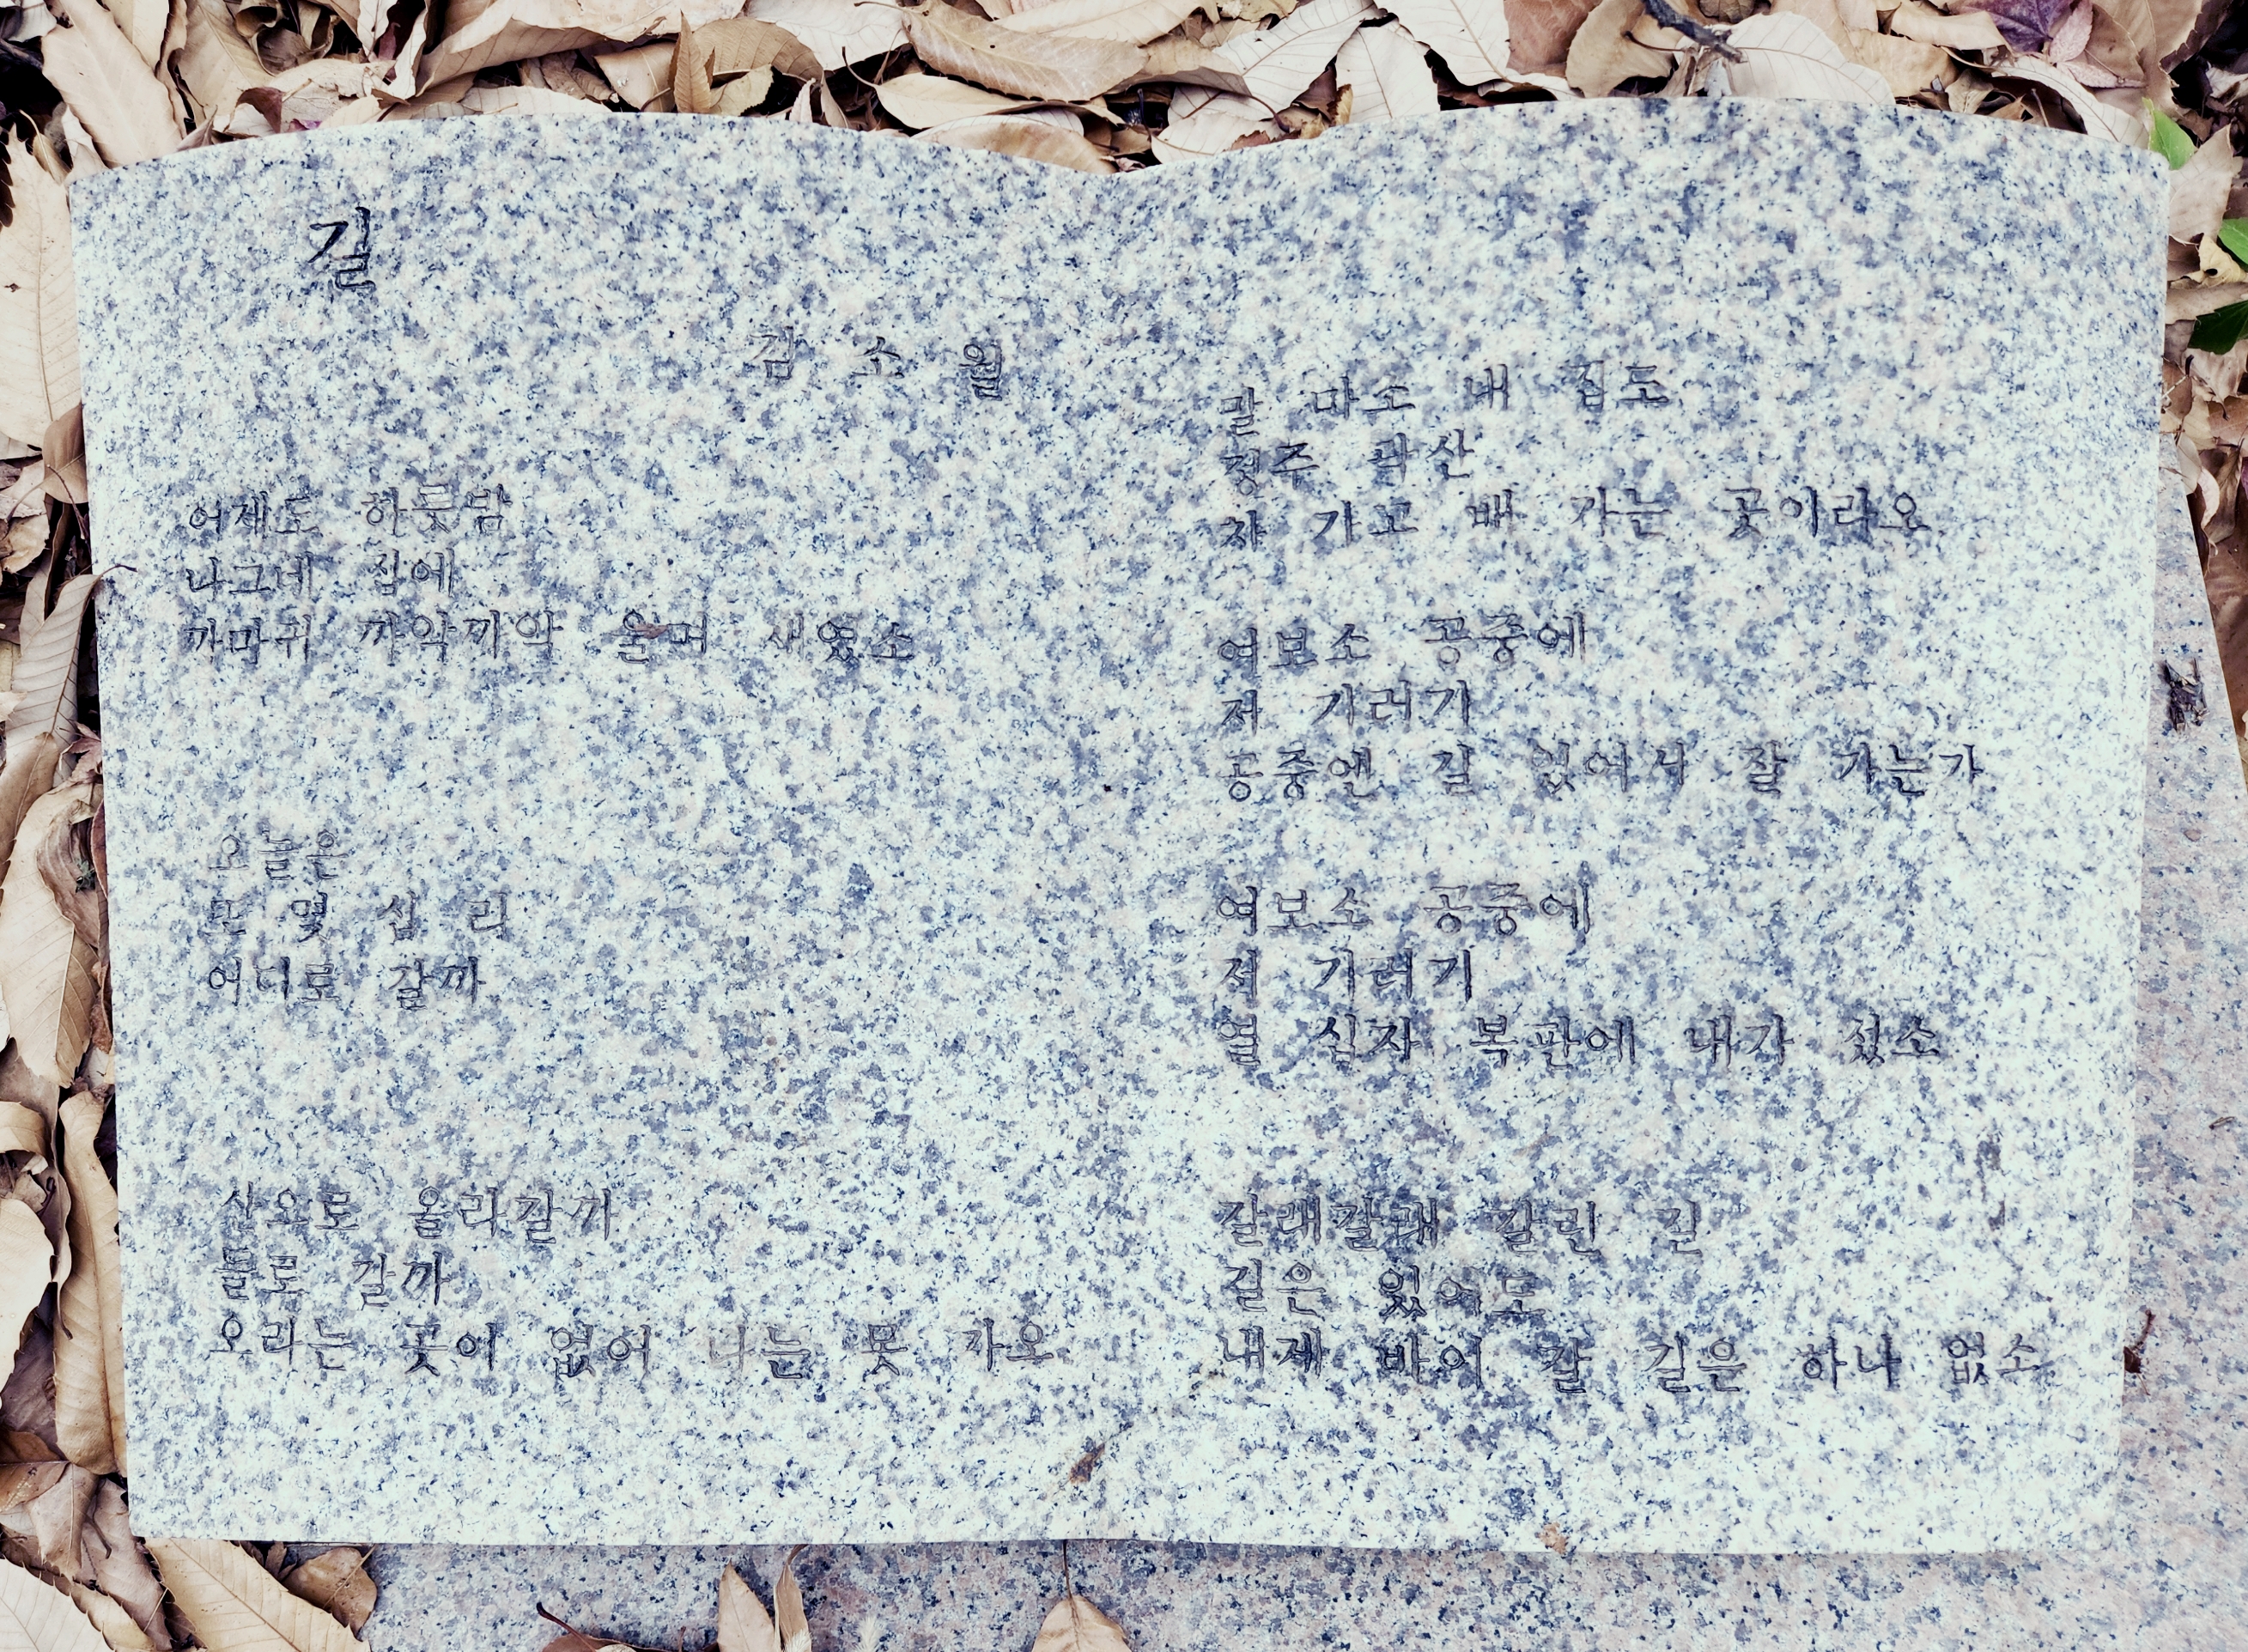 길
김 소 월
어제도 하룻밤
나그네 집에
까마귀 까악까악 울며 새였소
오늘은
또 몇 십 리
어디로 갈까
산으로 올라갈까
들로 갈까
오라는 곳이 없어 나는 못 가오
말 마소 내 집도
정주 곽산
차 가고 배 가는 곳이라오
여보소 공중에
저 기러기
공중엔 길 있어서 잘 가는가
여보소 공중에
저 기러기
열 십자 복판에 내가 섰소
갈래갈래 갈린 길
길은 있어도
내게 바이 갈 길은 하나 없소